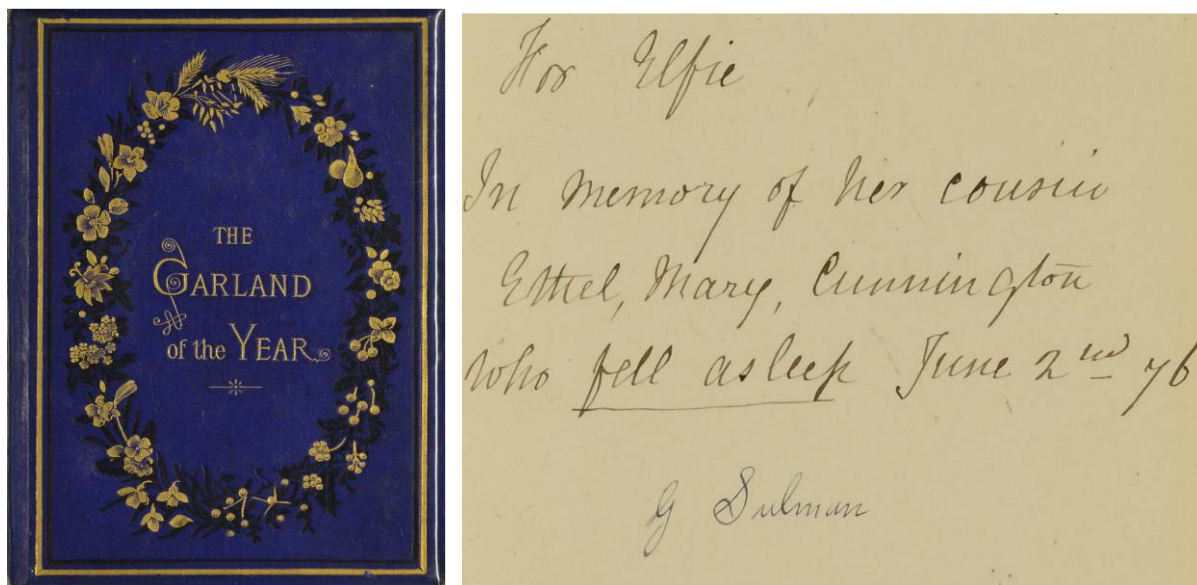 THE
GARLAND
of the YEAR
For Elfie
In memory of her cousin
Ethel, Mary, Cunnington
who fell asleep June 2nd 76
G Sulman